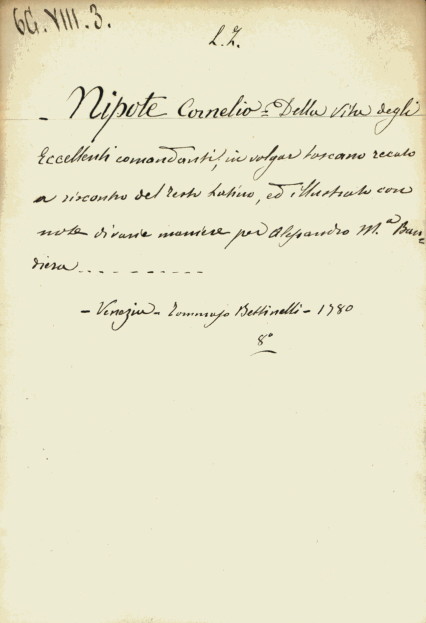 6G.VIII.3.
L.Z.
- Nipote Cornelio = Della Vita degli
Eccellenti comandanti, in volgar toscano recato
a riscontro del testo latino, ed illustrato con
note di varie maniere per Alessandro M.a Ban=
diera
- Venezia - Tommaso Bettinelli - 1780
8°